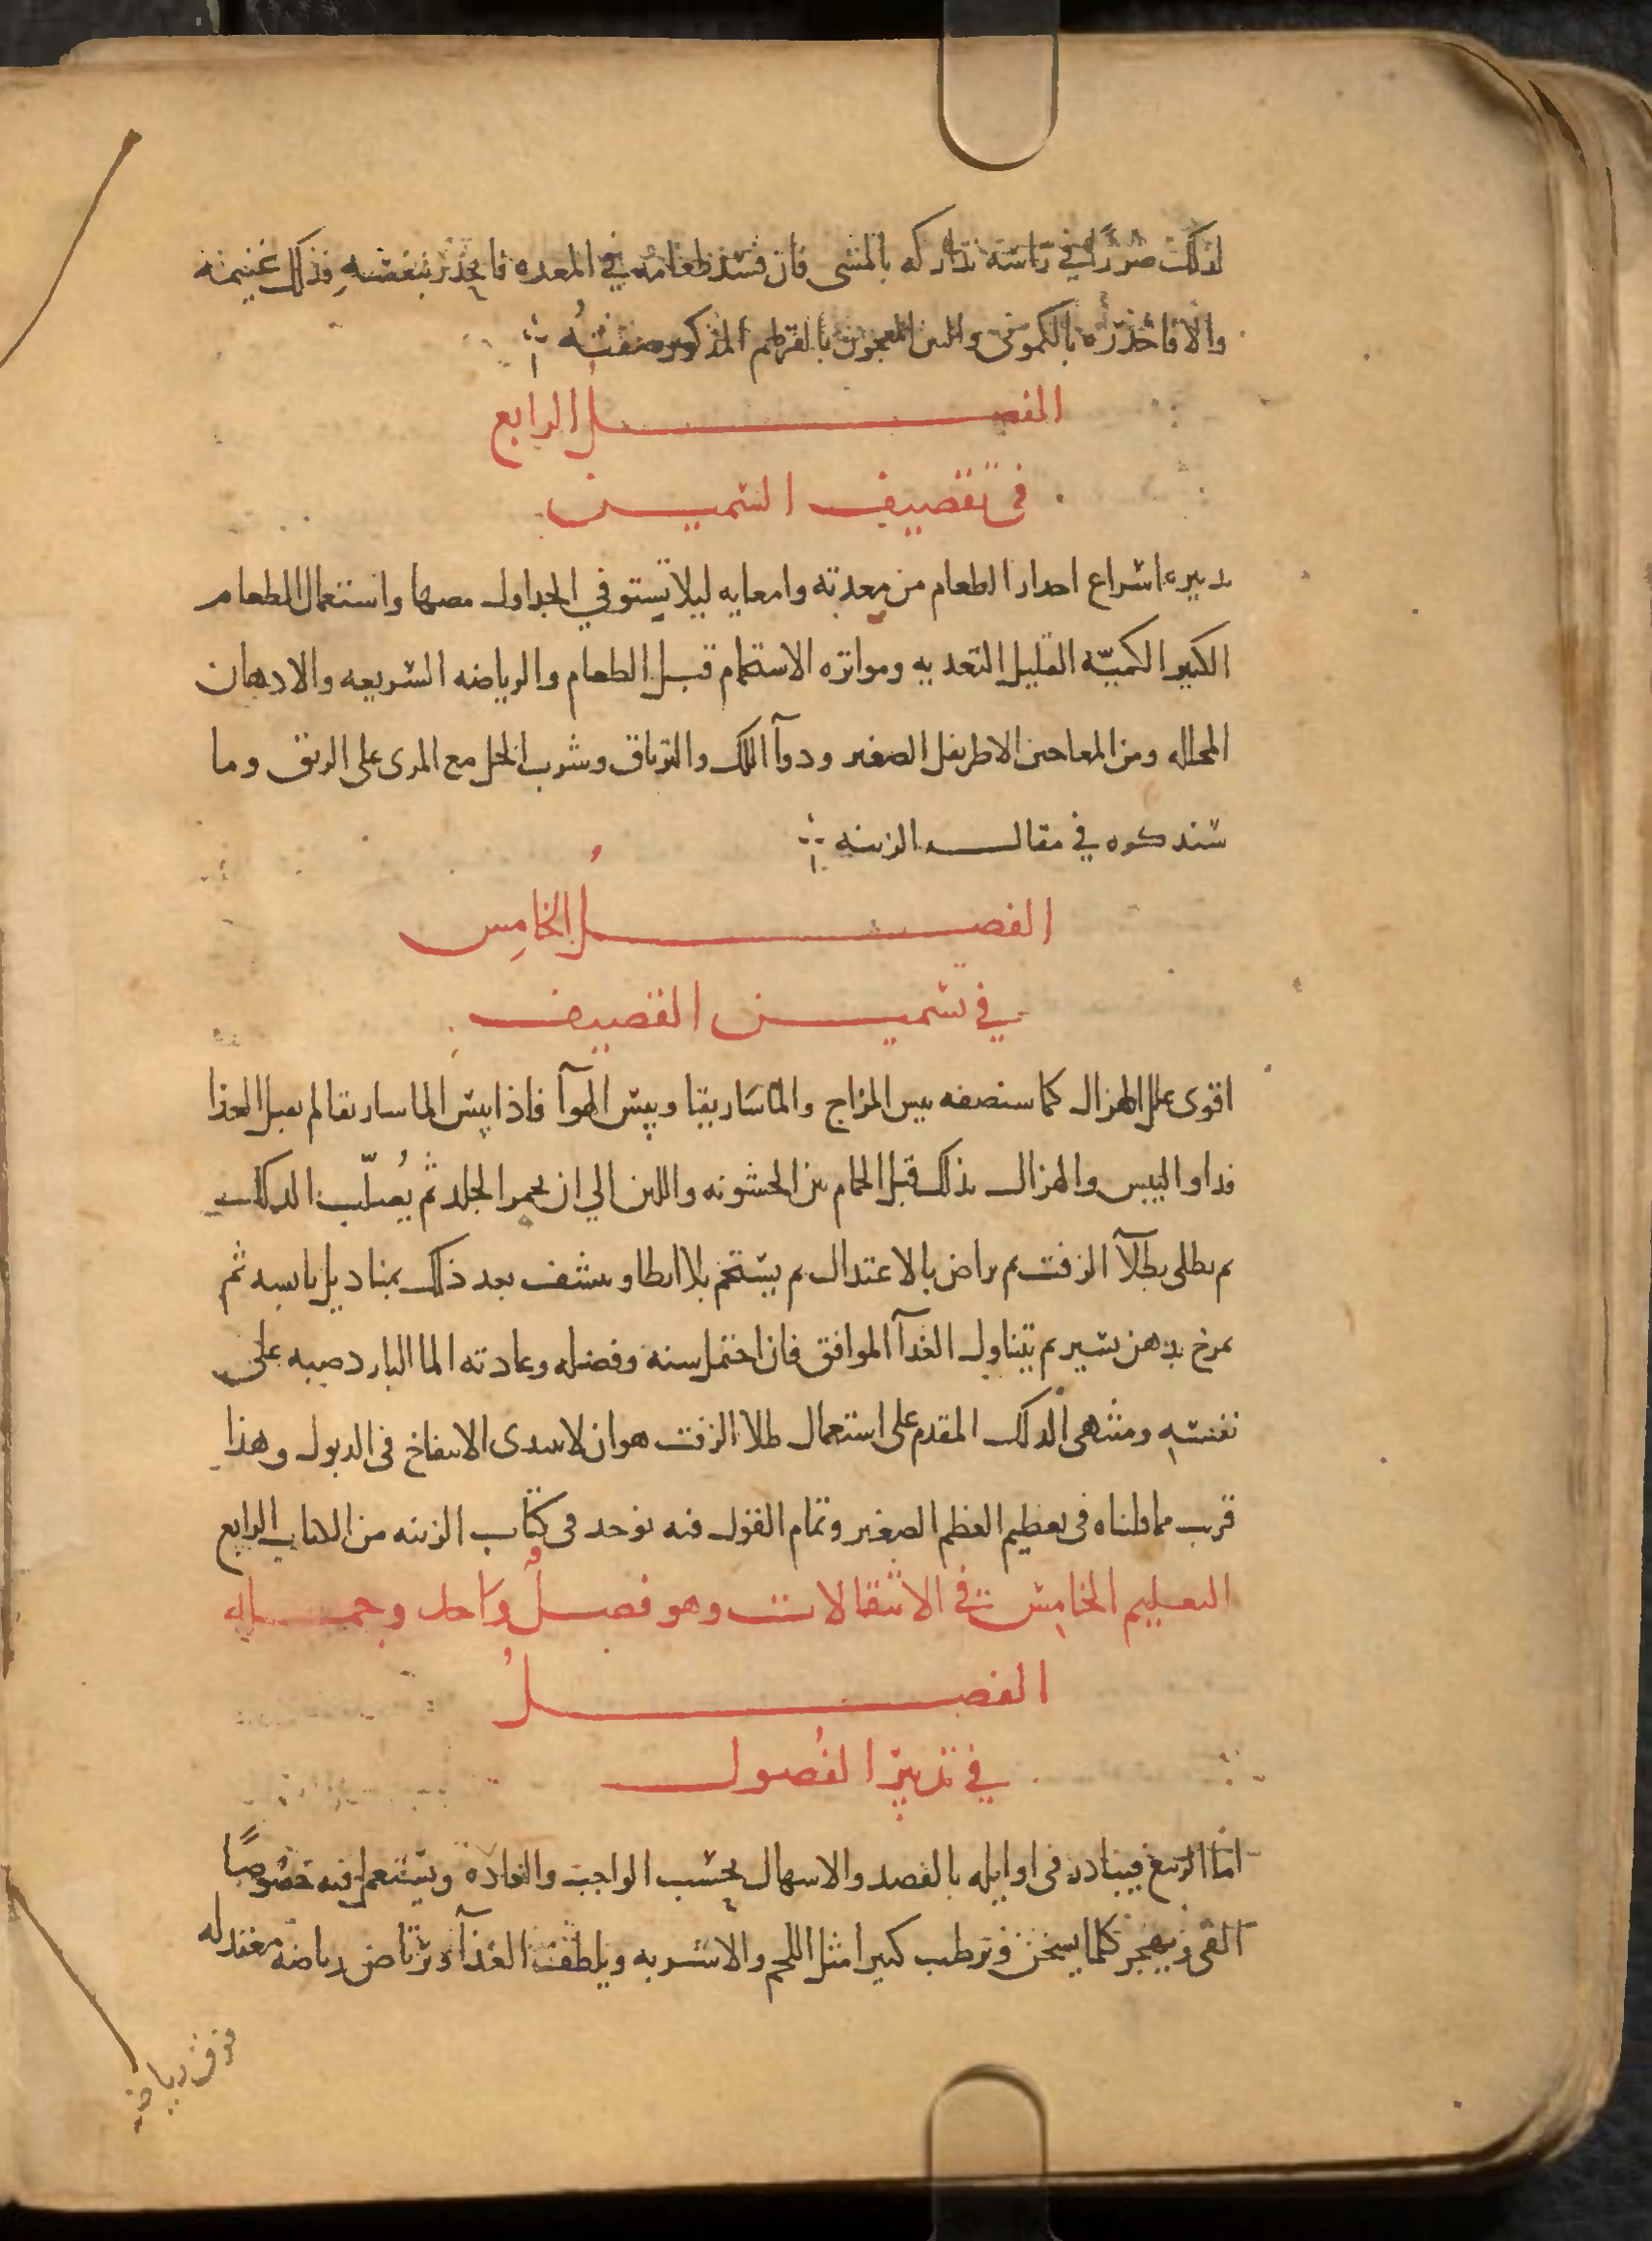 لذلك ضررا في راسه تداركه بالمشى فان فسد طعامه في المعده فانحدر بنفسه فذلك غنيمه
والا فاحدره بالكمونى والتين المعجون بالقرطم المذكور صفته
الفصل الرابع
فى تقصيف السمين
تدبيره اسراع احدار الطعام من معدته وامعايه ليلا تستوفي الجداول مصها واستعمال الطعام
الكثير الكميّه القليل التغديه ومواتره الاستحمام قبل الطعام والرياضه السريعه والادهان
المحلله ومن المعاجين الاطريفل الصغير ودوآ اللك والترياق وشرب الخل مع المرى على الريق وما
سنذكره في مقاله الزينه
الفصل الخامِس
في تسمين القصيف
اقوى علل الهزال كما سنصفه يبس المزاج والماسَاريقا ويبس الهوآ فاذا يبس الماساريقا لم يقبل الغذا
فداو اليبس والهزال بدلك قبل الحمام بين الخشونه واللين الي ان يحمر الجلد ثم يُصلّب الدلك
ثم يطلى بطلآ الزفت ثم يراض بالاعتدال ثم يستحم بلا ابطا وينشف بعد ذلك بمناديل يابسه ثم
يمرخ بدهن يسير ثم يتناول الغدآ الموافق فان احتمل سنه وفصله وعادته الما البارد صبه على
نفسه ومنتهى الدلك المقدم على استعمال طلا الزفت هو ان لا يبتدى الانتفاخ فى الذبول وهذا
قريب مما قلناه فى تعظيم العظم الصغير وتمام القول فيه يوجد فى كتاب الزينه من الكتاب الرابع
التعليم الخامِس في الانتقالات وهو فصلُ واحد وجمله
الفصلُ
في تدبير الفُصول
امّا الربيع فيبادر فى اوايله بالفصد والاسهال بحسب الواجب والعاده ويستعمل فيه خصوصًا
القى ويهجر كلما يسخن ويرطب كثيرا مثل اللحم والاشربه ويلطف الغذآ ويرتاض رياضه معتدله
فوق رياضه